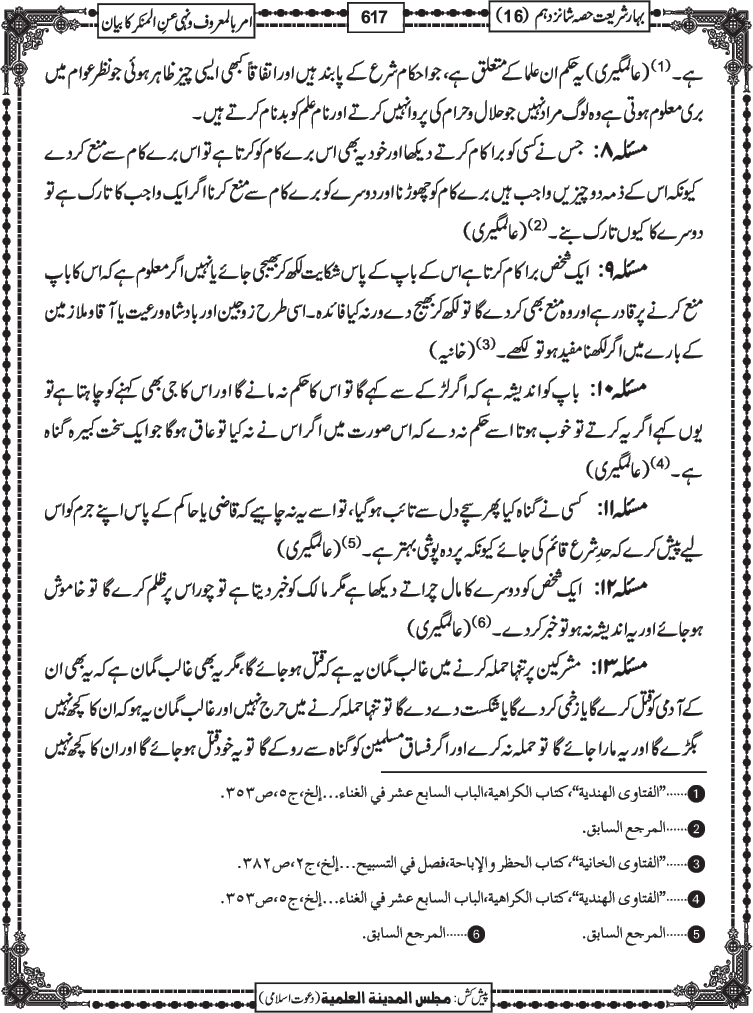 بہار شریعت حصہ شانزدہم (16)
617
امر بالمعروف ونہی عن المنکر کا بیان
ہے۔(1) (عالمگیری) یہ حکم ان علما کے متعلق ہے، جو احکام شرع کے پابند ہیں اور اتفاقاً کبھی ایسی چیز ظاہر ہوئی جو نظر عوام میں
بری معلوم ہوتی ہے وہ لوگ مراد نہیں جو حلال و حرام کی پروا نہیں کرتے اور نام علم کو بدنام کرتے ہیں۔
مسئلہ ۸: جس نے کسی کو برا کام کرتے دیکھا اور خود یہ بھی اس برے کام کو کرتا ہے تو اس برے کام سے منع کردے
کیونکہ اس کے ذمہ دو چیزیں واجب ہیں برے کام کو چھوڑنا اور دوسرے کو برے کام سے منع کرنا اگر ایک واجب کا تارک ہے تو
دوسرے کا کیوں تارک بنے۔(2) (عالمگیری)
مسئلہ ۹: ایک شخص برا کام کرتا ہے اس کے باپ کے پاس شکایت لکھ کر بھیجی جائے یا نہیں اگر معلوم ہے کہ اس کا باپ
منع کرنے پر قادر ہے اور وہ منع بھی کردے گا تو لکھ کر بھیج دے ورنہ کیا فائدہ۔ اسی طرح زوجین اور بادشاہ ورعیت یا آقا وملازمین
کے بارے میں اگر لکھنا مفید ہو تو لکھے۔(3) (خانیہ)
مسئلہ ۱۰: باپ کو اندیشہ ہے کہ اگر لڑکے سے کہے گا تو اس کا حکم نہ مانے گا اور اس کا جی بھی کہنے کو چاہتا ہے تو
یوں کہے اگر یہ کرتے تو خوب ہوتا اسے حکم نہ دے کہ اس صورت میں اگر اس نے نہ کیا تو عاق ہوگا جو ایک سخت کبیرہ گناہ
ہے۔(4) (عالمگیری)
مسئلہ ۱۱: کسی نے گناہ کیا پھر سچے دل سے تائب ہوگیا، تو اسے یہ نہ چاہیے کہ قاضی یا حاکم کے پاس اپنے جرم کو اس
لیے پیش کرے کہ حدِ شرع قائم کی جائے کیونکہ پردہ پوشی بہتر ہے۔(5) (عالمگیری)
مسئلہ ۱۲: ایک شخص کو دوسرے کا مال چراتے دیکھا ہے مگر مالک کو خبر دیتا ہے تو چور اس پر ظلم کرے گا تو خاموش
ہوجائے اور یہ اندیشہ نہ ہو تو خبر کردے۔(6) (عالمگیری)
مسئلہ ۱۳: مشرکین پر تنہا حملہ کرنے میں غالب گمان یہ ہے کہ قتل ہوجائے گا، مگر یہ بھی غالب گمان ہے کہ یہ بھی ان
کے آدمی کو قتل کرے گا یا زخمی کردے گا یا شکست دے دے گا تو تنہا حملہ کرنے میں حرج نہیں اور غالب گمان یہ ہو کہ ان کا کچھ نہیں
بگڑے گا اور یہ مارا جائے گا تو حملہ نہ کرے اور اگر فساق مسلمین کو گناہ سے روکے گا تو یہ خود قتل ہوجائے گا اور ان کا کچھ نہیں
1......”الفتاوی الھندیة“، کتاب الکراھیة، الباب السابع عشر في الغناء...إلخ، ج٥، ص٣٥٣.
2......المرجع السابق.
3......”الفتاوی الخانیة“، کتاب الحظر والإباحة، فصل في التسبیح...إلخ، ج٢، ص٣٨٢.
4......”الفتاوی الھندیة“، کتاب الکراھیة، الباب السابع عشر في الغناء...إلخ، ج٥، ص٣٥٣.
5......المرجع السابق. 6......المرجع السابق.
پیش کش: مجلس المدینة العلمیة (دعوت اسلامی)